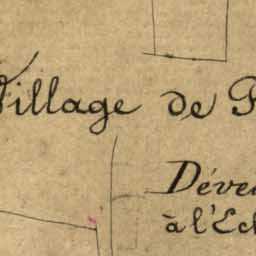 Village de P
Déve
à l'Ech